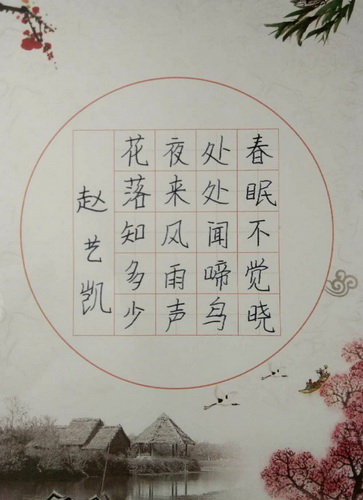 春眠不觉晓
处处闻啼鸟
夜来风雨声
花落知多少
赵艺凯